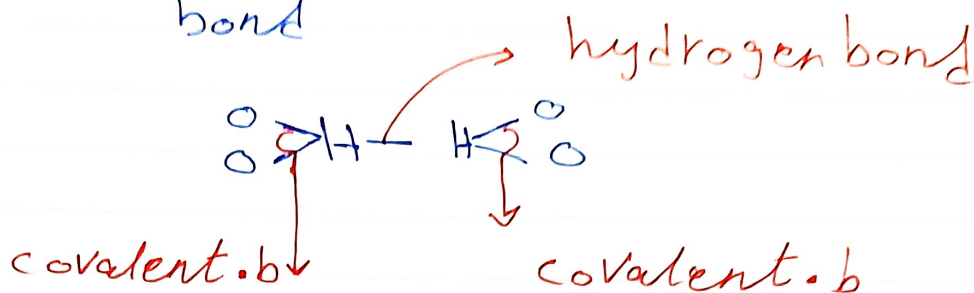 bond
hydrogen bond
O O
>H — H<
O O
covalent.b covalent.b